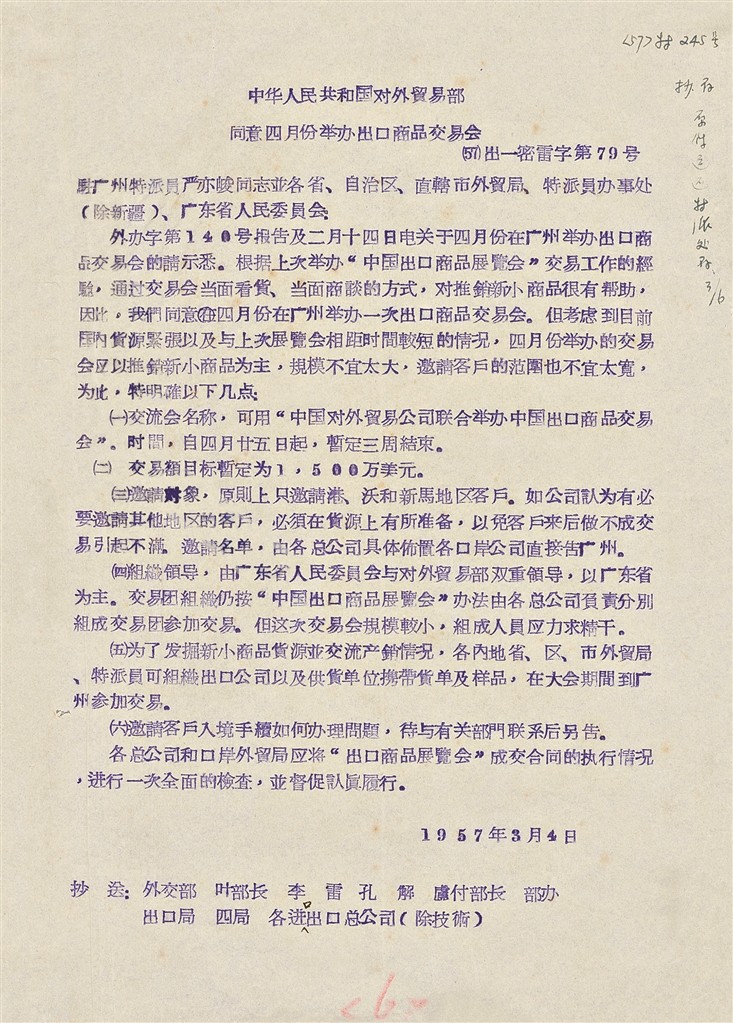 245号
抄存
中华人民共和国对外貿易部
同意四月份举办出口商品交易会
(57)出一密雷字第79号
駐广州特派員严亦峻同志並各省、自治区、直轄市外貿局、特派員办事处
(除新疆)、广东省人民委員会:
外办字第140号报告及二月十四日电关于四月份在广州举办出口商
品交易会的請示悉。根据上次举办“中国出口商品展覽会”交易工作的經
驗，通过交易会当面看貨、当面商談的方式，对推銷新小商品很有帮助，
因此，我們同意在四月份在广州举办一次出口商品交易会。但考慮到目前
国内貨源緊張以及与上次展覽会相距时間較短的情况，四月份举办的交易
会应以推銷新小商品为主，規模不宜太大，邀請客戶的范圍也不宜太寬，
为此，特明確以下几点:
㈠交流会名称，可用“中国对外貿易公司联合举办中国出口商品交易
会”。时間，自四月廿五日起，暫定三周結束。
㈡ 交易額目标暫定为1，500万美元。
㈢邀請对象，原則上只邀請港、沃和新馬地区客戶。如公司認为有必
要邀請其他地区的客戶，必須在貨源上有所准备，以免客戶来后做不成交
易引起不滿。邀請名单，由各总公司具体佈置各口岸公司直接告广州。
㈣組織領导，由广东省人民委員会与对外貿易部双重領导，以广东省
为主。交易团組織仍按“中国出口商品展覽会”办法由各总公司負責分別
組成交易团参加交易。但这次交易会規模較小，組成人員应力求精干。
㈤为了发掘新小商品貨源並交流产銷情况，各内地省、区、市外貿局
、特派員可組織出口公司以及供貨单位携帶貨单及样品，在大会期間到广
州参加交易。
㈥邀請客戶入境手續如何办理問題，待与有关部門联系后另告。
各总公司和口岸外貿局应将“出口商品展覽会”成交合同的执行情况
，进行一次全面的檢查，並督促認眞履行。
1957年3月4日
抄 送: 外交部 叶部长 李 雷 孔 解 盧付部长 部办
出口局 四局 各进口出口总公司(除技術)